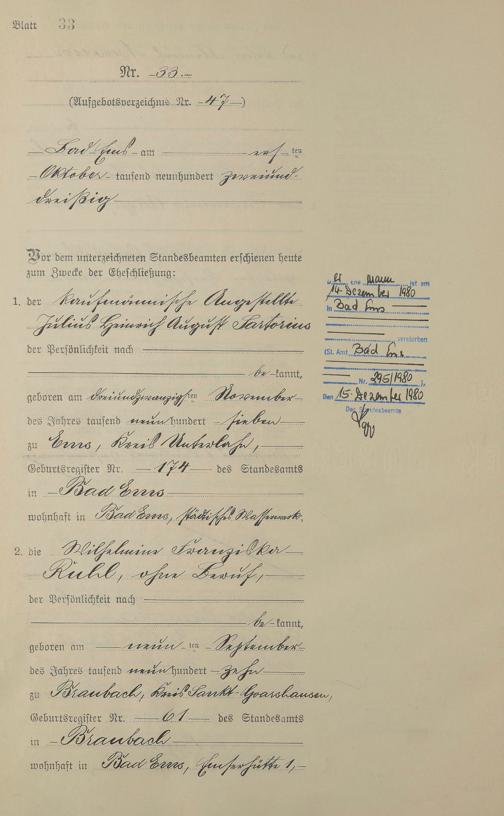 Blatt 33
Nr. 33.
(Aufgebotsverzeichnis Nr. 47)
Bad Ems am ersten
Oktober tausend neunhundert zweiund-
dreißig
Vor dem unterzeichneten Standesbeamten erschienen heute
zum Zwecke der Eheschließung:
1. der kaufmännische Angestellte
Julius Heinrich August Sartorius
der Persönlichkeit nach
be kannt,
geboren am dreiundzwanzigsten November
des Jahres tausend neunhundert sieben
zu Ems, Kreis Unterlahn,
Geburtsregister Nr. 174 des Standesamts
in Bad Ems
wohnhaft in Bad Ems, städtisches Wasserwerk.
2. die Wilhelmine Franziska
Rühl, ohne Beruf,
der Persönlichkeit nach
be kannt,
geboren am neunten September
des Jahres tausend neunhundert zehn
zu Braubach, Kreis Sankt Goarshausen,
Geburtsregister Nr. 61 des Standesamts
in Braubach
wohnhaft in Bad Ems, Emserhütte 1,
Ehemann ist am
14. Dezember 1980
in Bad Ems
verstorben
(St. Amt Bad Ems
Nr. 295/1980),
Den 15. Dezember 1980
Der Standesbeamte